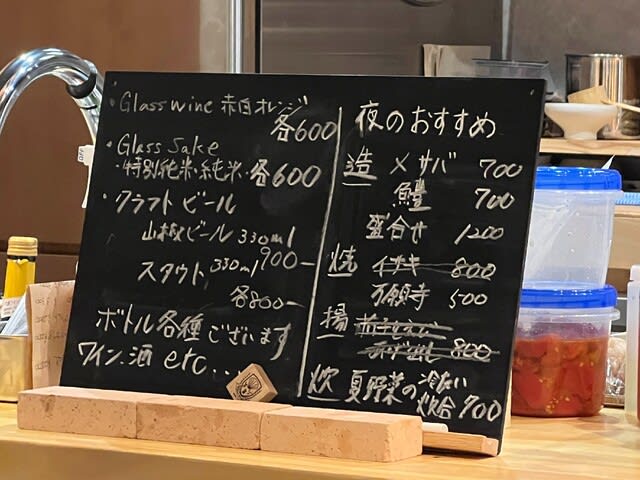 ・Glass wine 赤白オレンジ
各600
・Glass Sake
・特別純米・純米・各600
・クラフトビール
山椒ビール 330ml
900-
スタウト 330ml
各800-
ボトル各種ございます
ワイン、酒 etc...
夜のおすすめ
造 〆サバ 700
鱧 700
盛合せ 1200
焼 イサキ 800
万願寺 500
揚
800
炊 夏野菜の冷たい
炊合 700